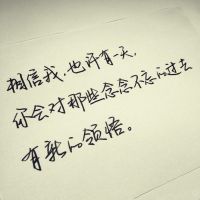 相信我,也许有一天,
你会对那些念念不忘的过去
有新的领悟。